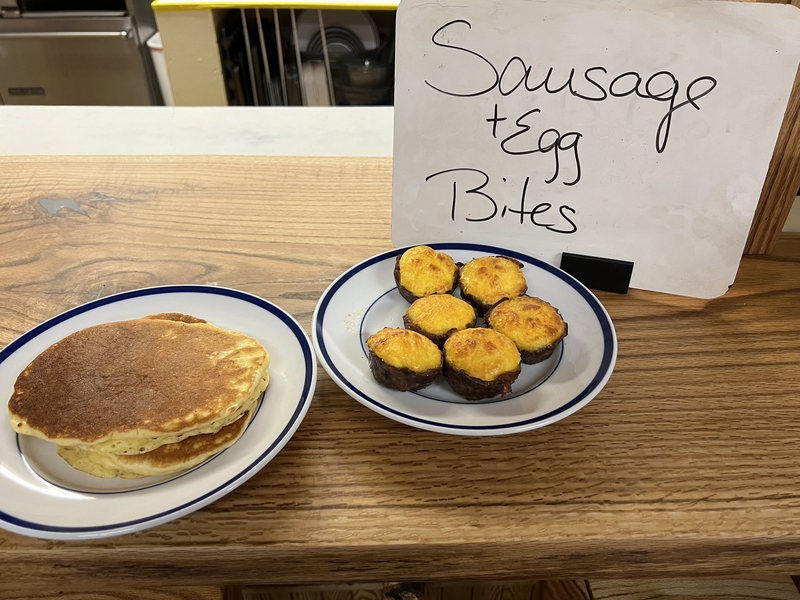 Sausage
+ Egg
Bites